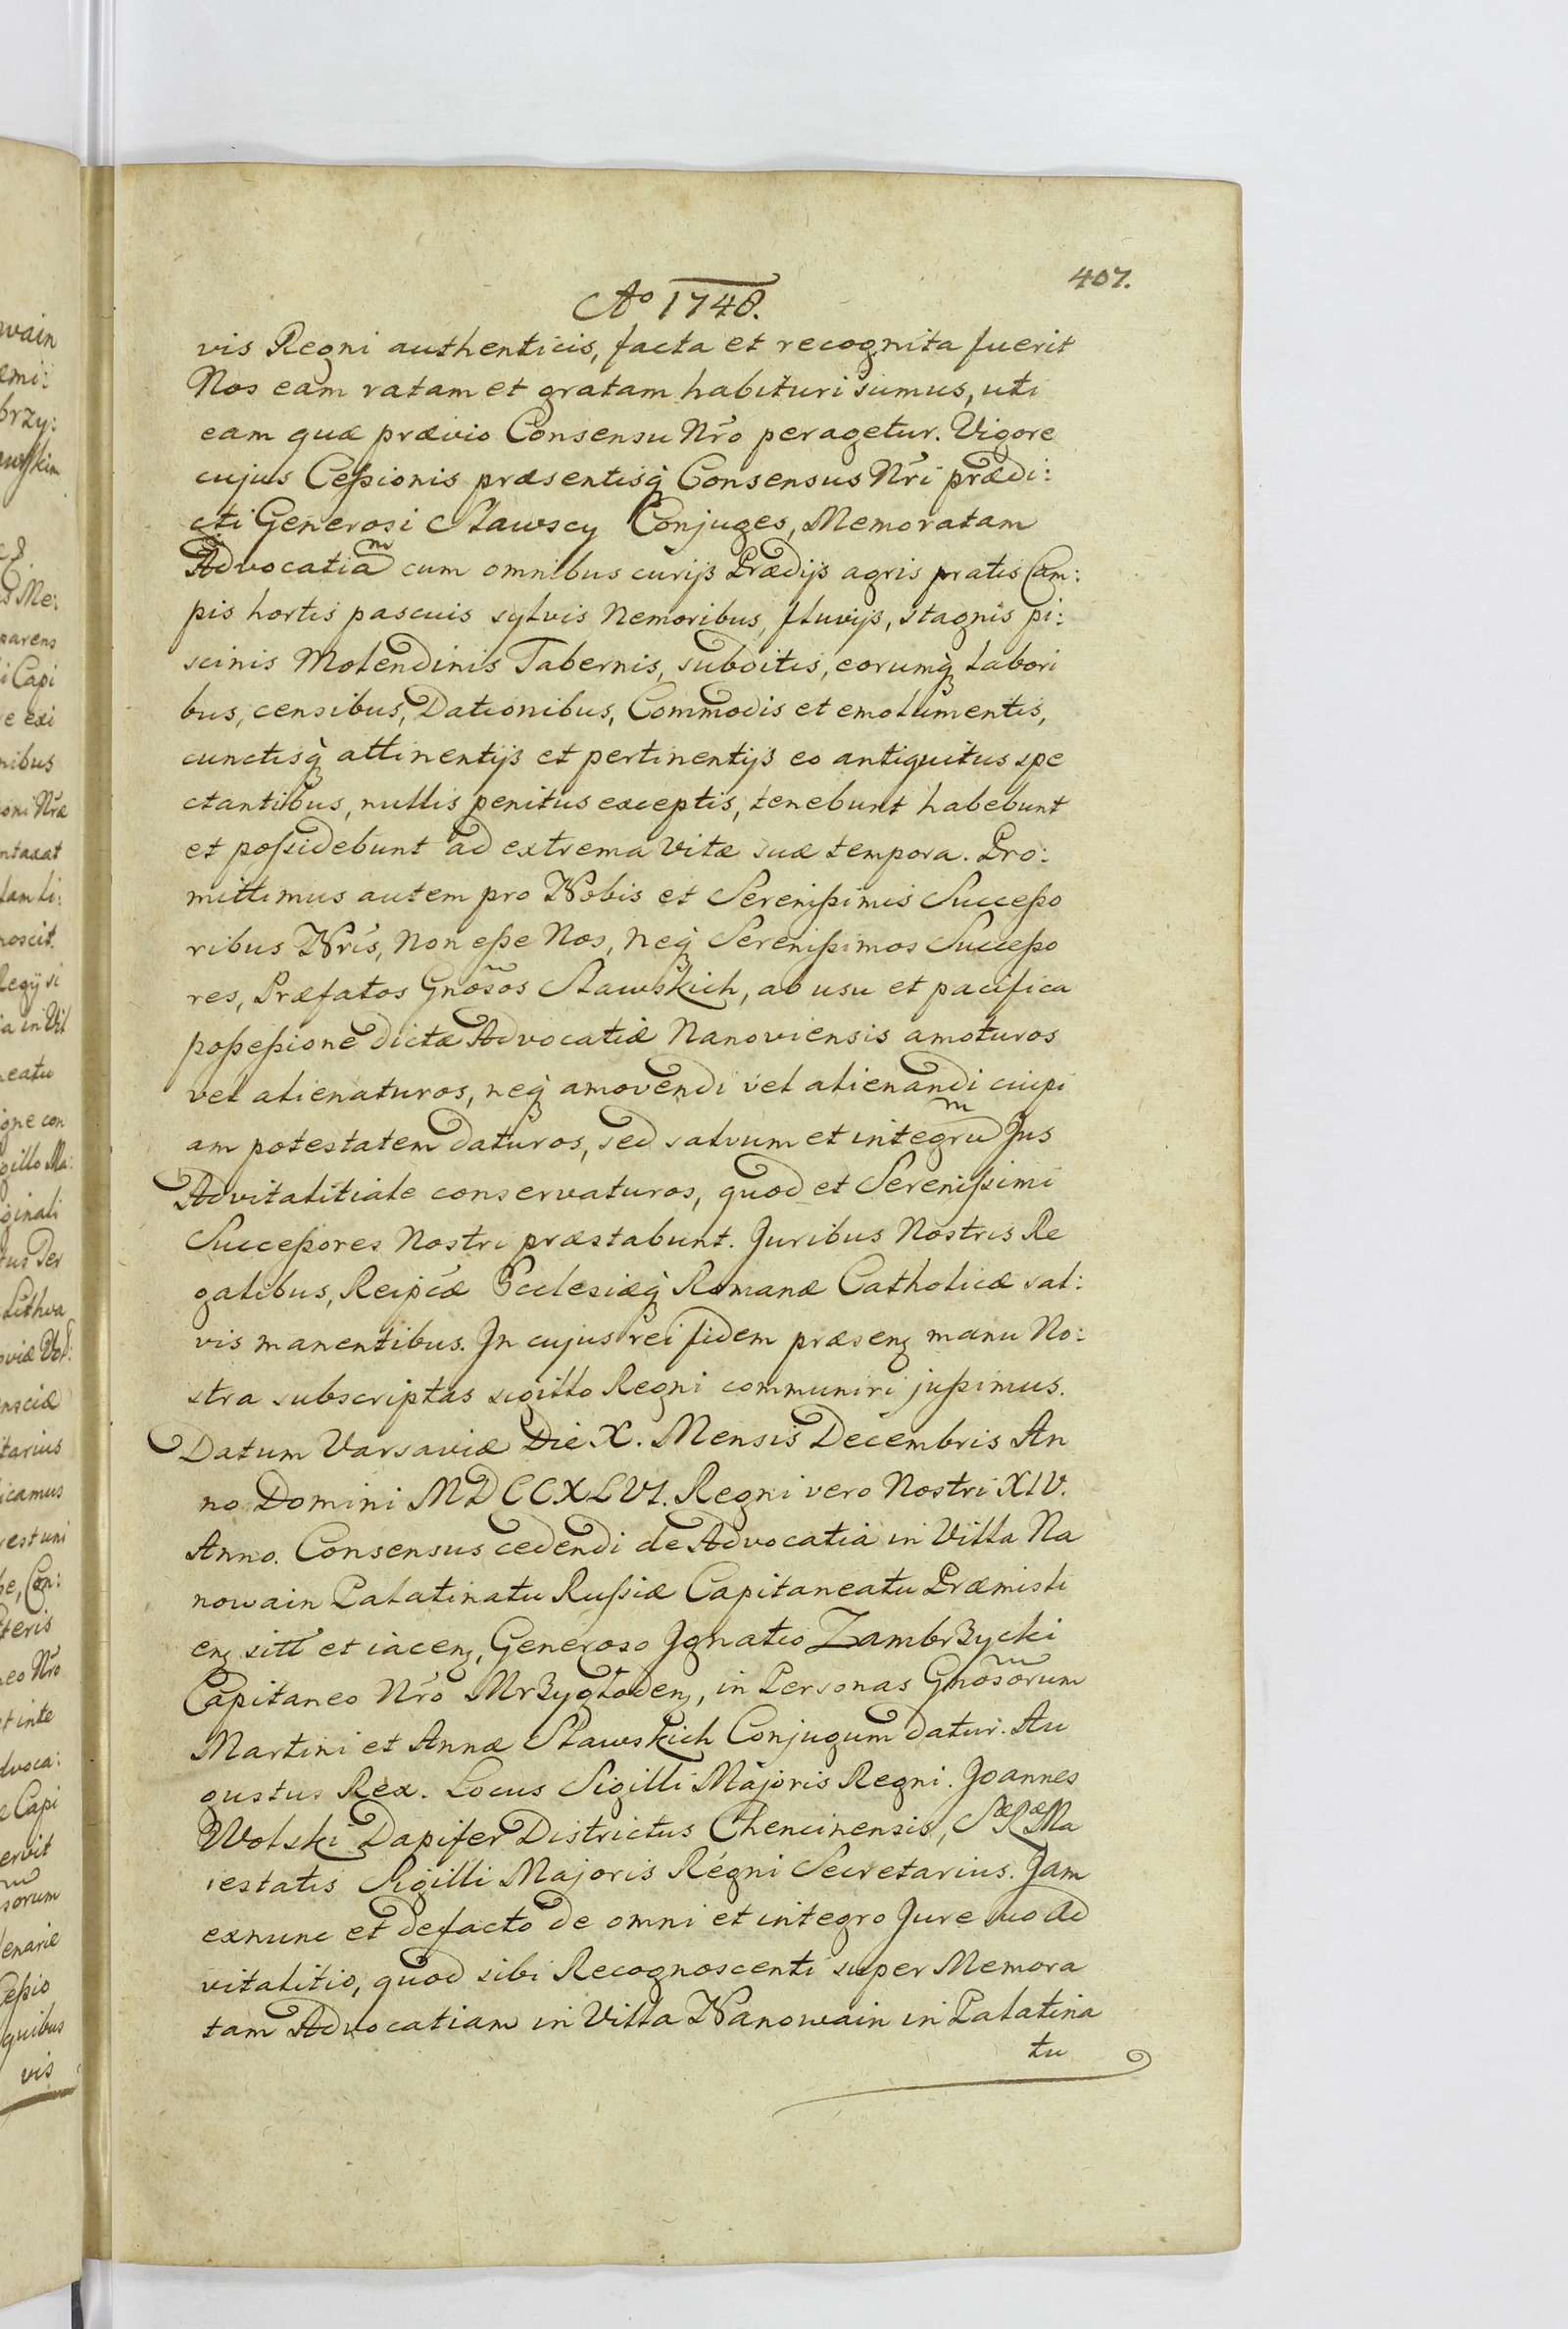 407.
Aº 1748.
vis Regni authenticis, facta et recognita fuerit
Nos eam ratam et gratam habituri sumus, uti
eam quæ prævio Consensu Nr̃o peragetur. Vigore
cujus Ceßionis præsentisq̃ Consensus Nr̃i prædi:
cti Generosi Stawscy Conjuges, Memoratam
Advocatiam cum omnibus curijs Prædijs agris pratis Cam:
pis hortis pascuis sylvis Nemoribus, fluvijs, stagnis pi:
scinis Molendinis Tabernis, subditis, eorumq̃ labori
bus, censibus, Dationibus, Commodis et emolumentis,
cunctisq̃ attinentijs et pertinentijs eo antiquitus spe
ctantibus, nullis penitus exceptis, tenebunt habebunt
et poßidebunt ad extrema vitæ suæ tempora. Pro:
mittimus autem pro Nobis et Serenißimis Succeßo
ribus Nr̃is, Non eße Nos, neq̃ Serenißimos Succeßo
res, Præfatos Gnõsos Stawskich, ab usu et pacifica
poßeßione dictæ Advocatiæ Nanoviensis amoturos
vel alienaturos, neq̃ amovendi vel alienandi cuipi
am potestatem daturos, sed salvum et integrum Jus
Advitalitiale conservaturos, quod et Serenißimi
Succeßores Nostri præstabunt. Juribus Nostris Re
galibus, Reipcæ Ecclesiæq̃ Romanæ Catholicæ sal:
vis manentibus. In cujus rei fidem præsenz manu No:
stra subscriptas sigillo Regni communiri jußimus.
Datum Varsaviæ Die X. Mensis Decembris An
no Domini MDCCXLVI. Regni vero Nostri XIV.
Anno. Consensus cedendi de Advocatia in Villa Na
nowain Palatinatu Rußiæ Capitaneatu Præmisli
enz sitt et iacenz, Generoso Ignatio Zambrzycki
Capitaneo Nr̃o Mrzygłodenz, in Personas Gnõsõrum
Martini et Annæ Stawskich Conjugum datur. Au
gustus Rex. Locus Sigilli Majoris Regni. Joannes
Wolski Dapifer Districtus Chencinensis, Sæ Ræ Ma
iestatis Sigilli Majoris Regni Secretarius. Jam
exnunc et defacto de omni et integro Jure suo Ad
vitalitio, quod sibi Recognoscenti super Memora
tam Advocatiam in Villa Nanowain in Palatina
tu